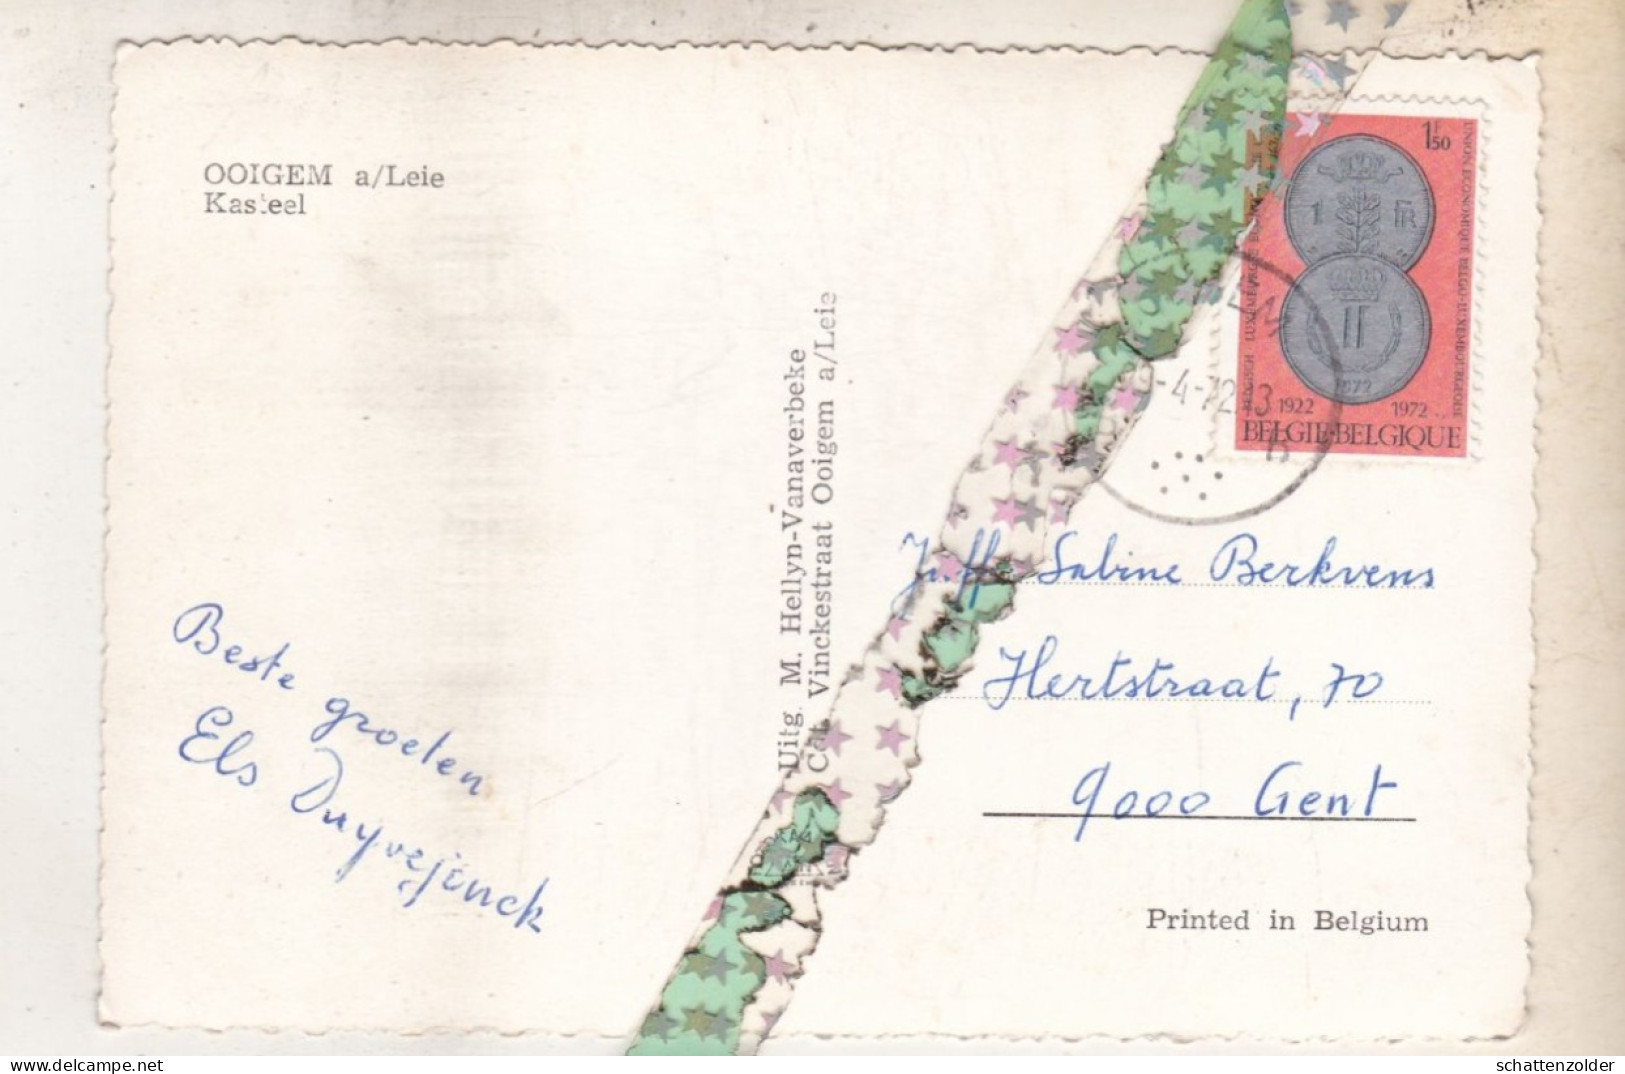 OOIGEM a/Leie
Kasteel
Beste groeten
Els Duyvejonck
Uitg. M. Hellyn-Vanaverbeke
Cat. Vinckestraat Ooigem a/Leie
1F50
UNION ECONOMIQUE BELGO-LUXEMBOURGEOISE
1 FR
1972
1922 1972
BELGIE·BELGIQUE
-4-72
Juffr Sabine Berkvens
Hertstraat, 70
9000 Gent
Printed in Belgium
schattenzolder